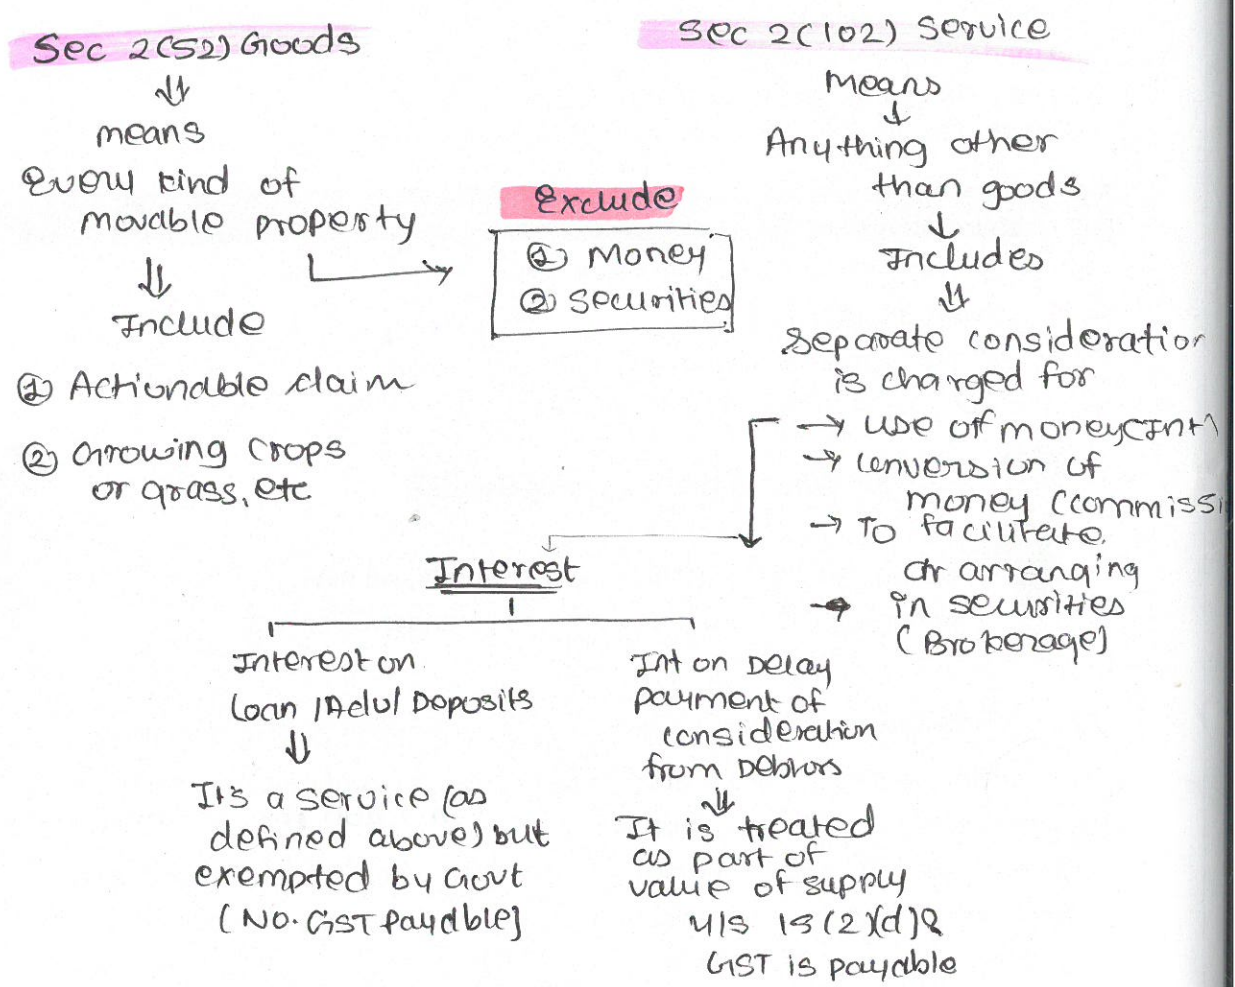 Sec 2(52) Goods
means
Every kind of
movable property
Include
① Actionable claim
② Growing crops
or grass, etc
Exclude
① Money
② Securities
Sec 2(102) Service
Means
Anything other
than goods
Includes
Separate consideration
is charged for
→ use of money (Int)
→ conversion of
money (commissi
→ To facilitate
or arranging
→ in securities
(Brokerage)
Interest
Interest on
Loan /Adv/ Deposits
It's a service (as
defined above) but
exempted by Govt
(No. GST Payable)
Int on Delay
payment of
consideration
from Debtors
It is treated
as part of
value of supply
u/s 15(2)(d) &
GST is payable